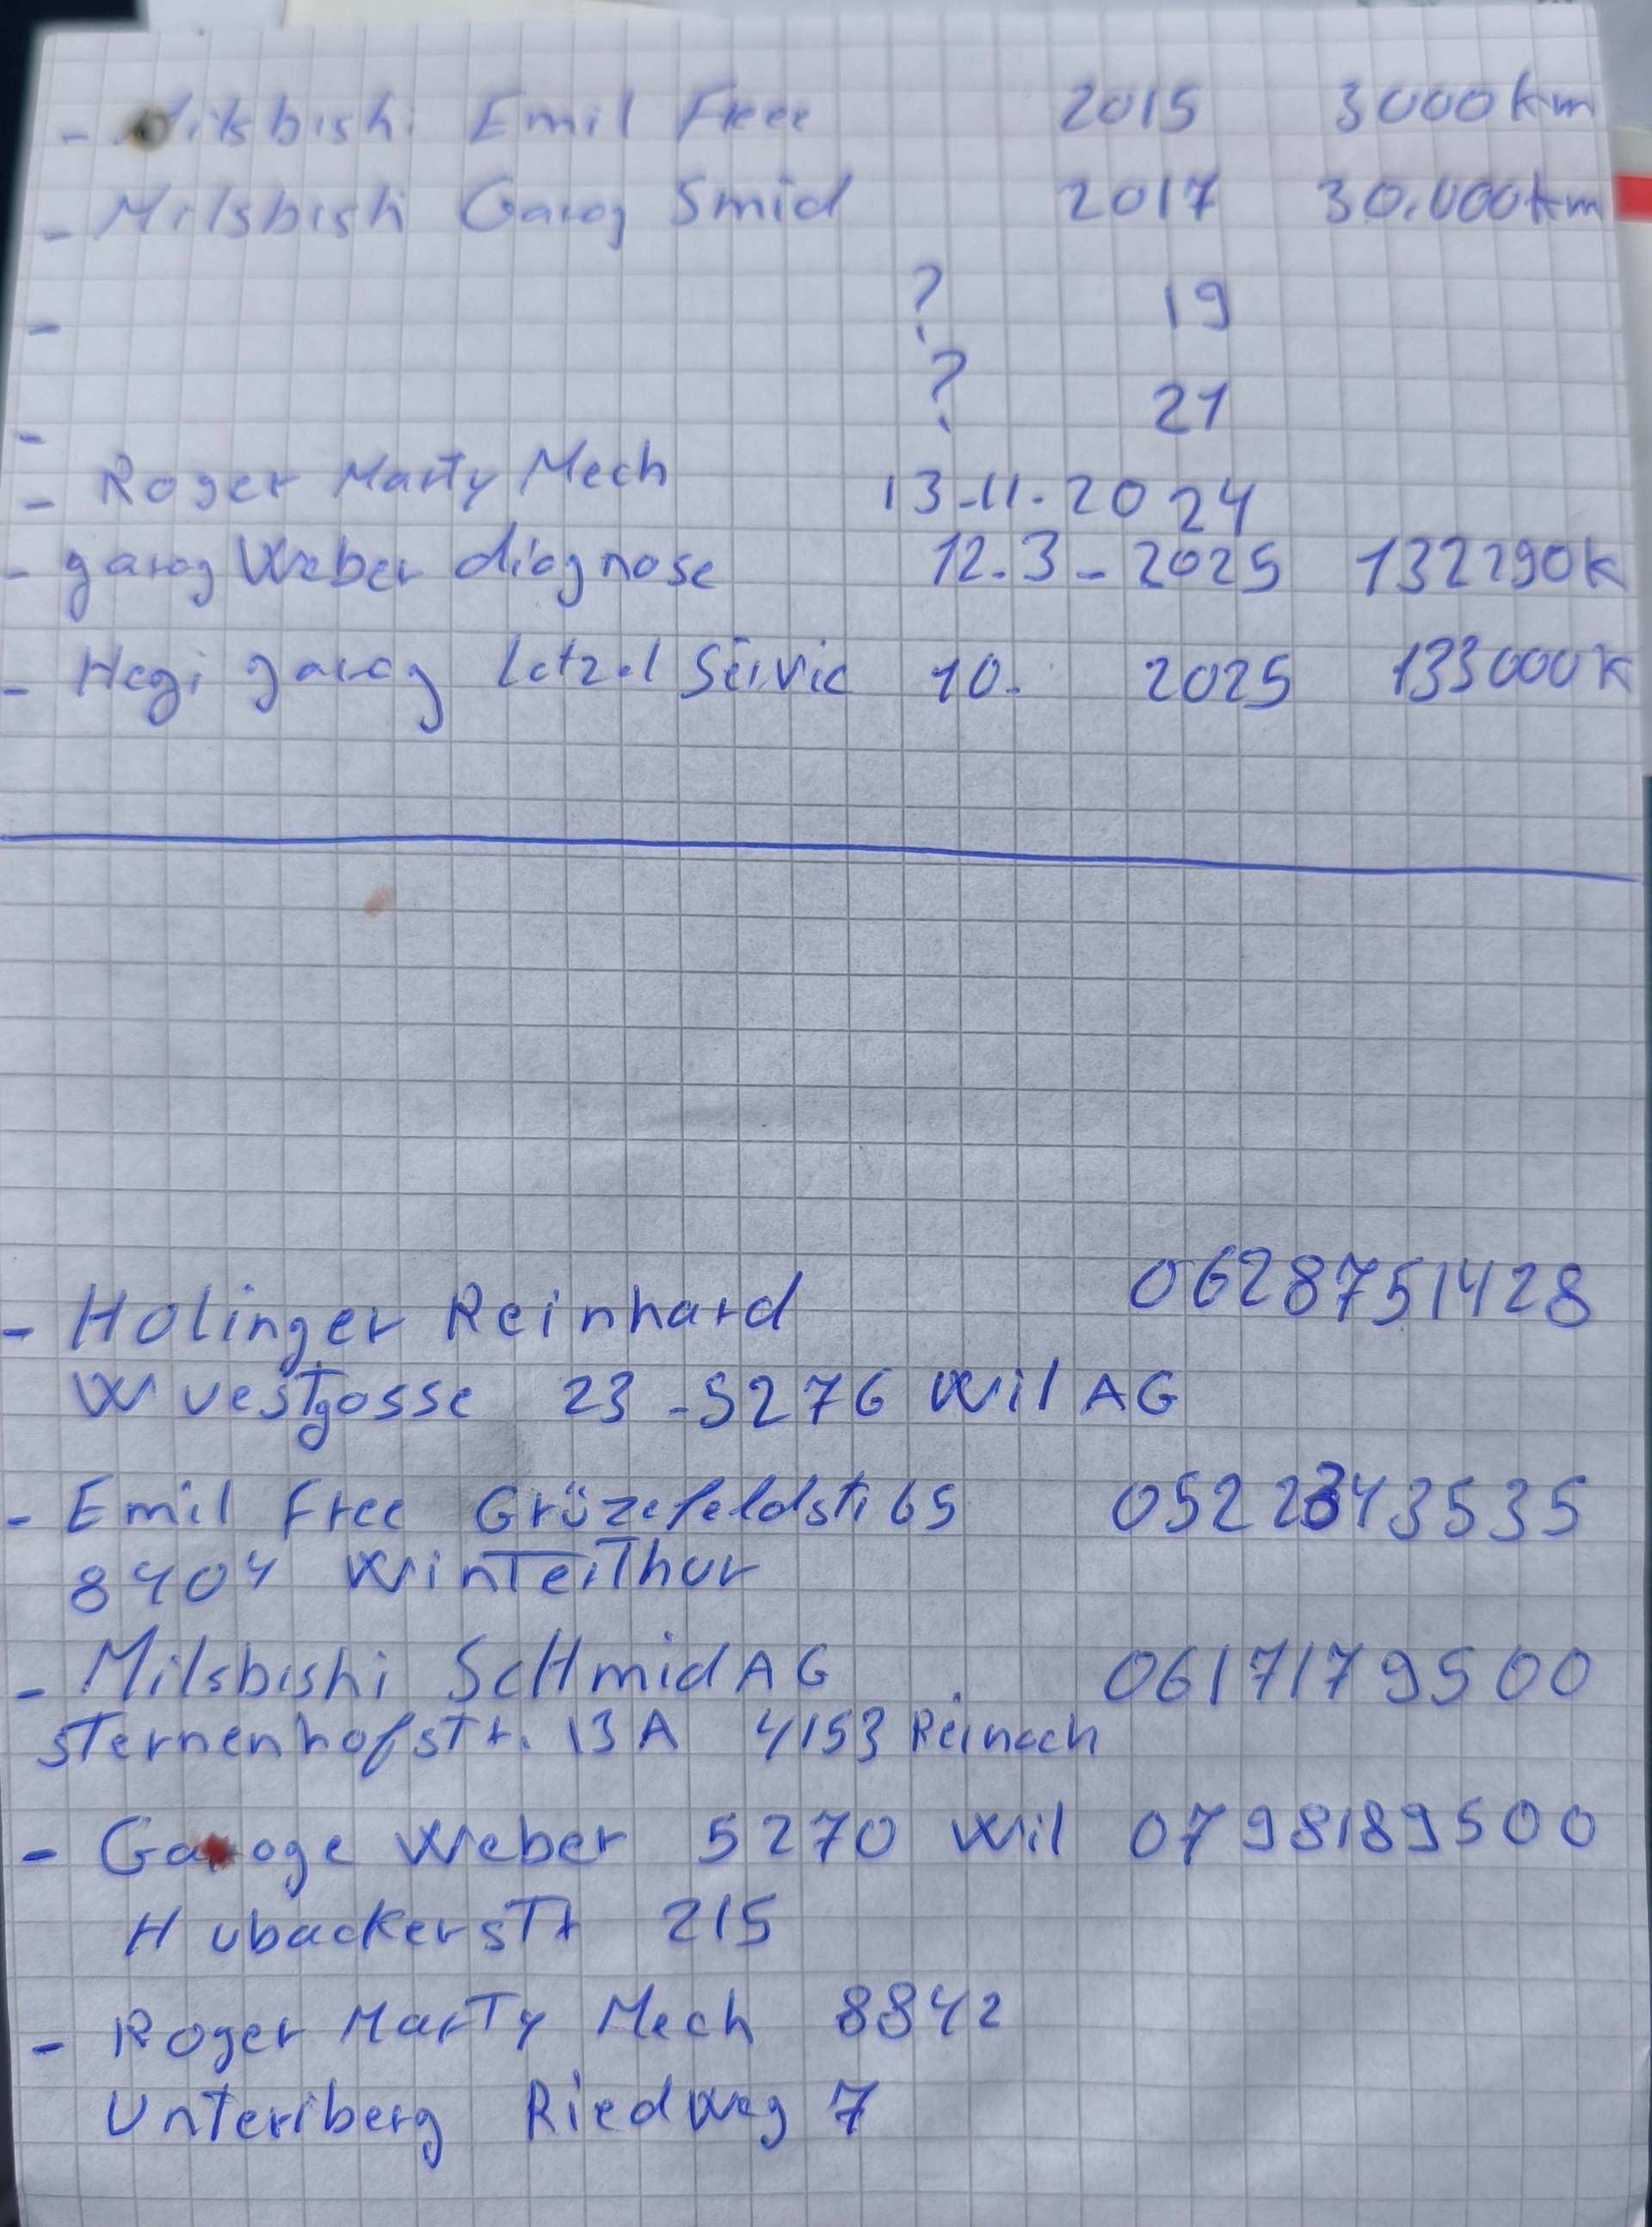 - Mitsbishi Emil Free 2015 3000km
- Milsbishi Garog Smid 2017 30.000km
- ? 19
- ? 21
- Roger Marty Mech 13-11-2024
- garog Weber diognose 12.3-2025 132290k
- Hegi garog letzel Servic 10. 2025 133000k
- Holinger Reinhard 0628751428
Wuestgosse 23-5276 Wil AG
- Emil Free Grüzefeldstr 65 0522343535
8404 Winterthur
- Milsbishi ScHmid AG 0617179500
sTernenhofsTr. 13A 4153 Reinach
- Garoge Weber 5270 Wil 0798189500
HubackersTr 215
- Roger MarTy Mech 8842
Unteriberg Riedweg 7